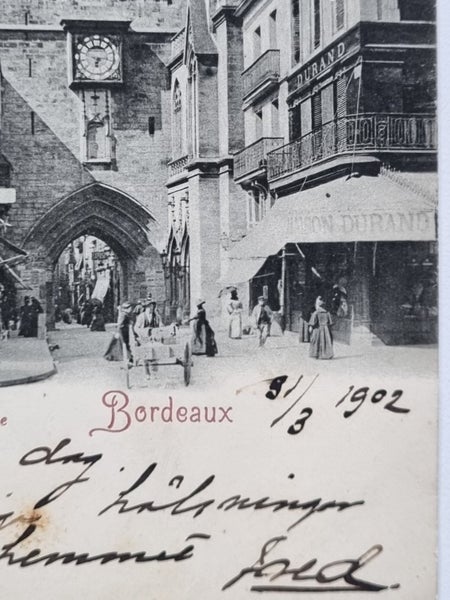 DURAND
MAISON DURAND
Bordeaux
31/3 1902
dag
hälsningar
hemmet
Fred